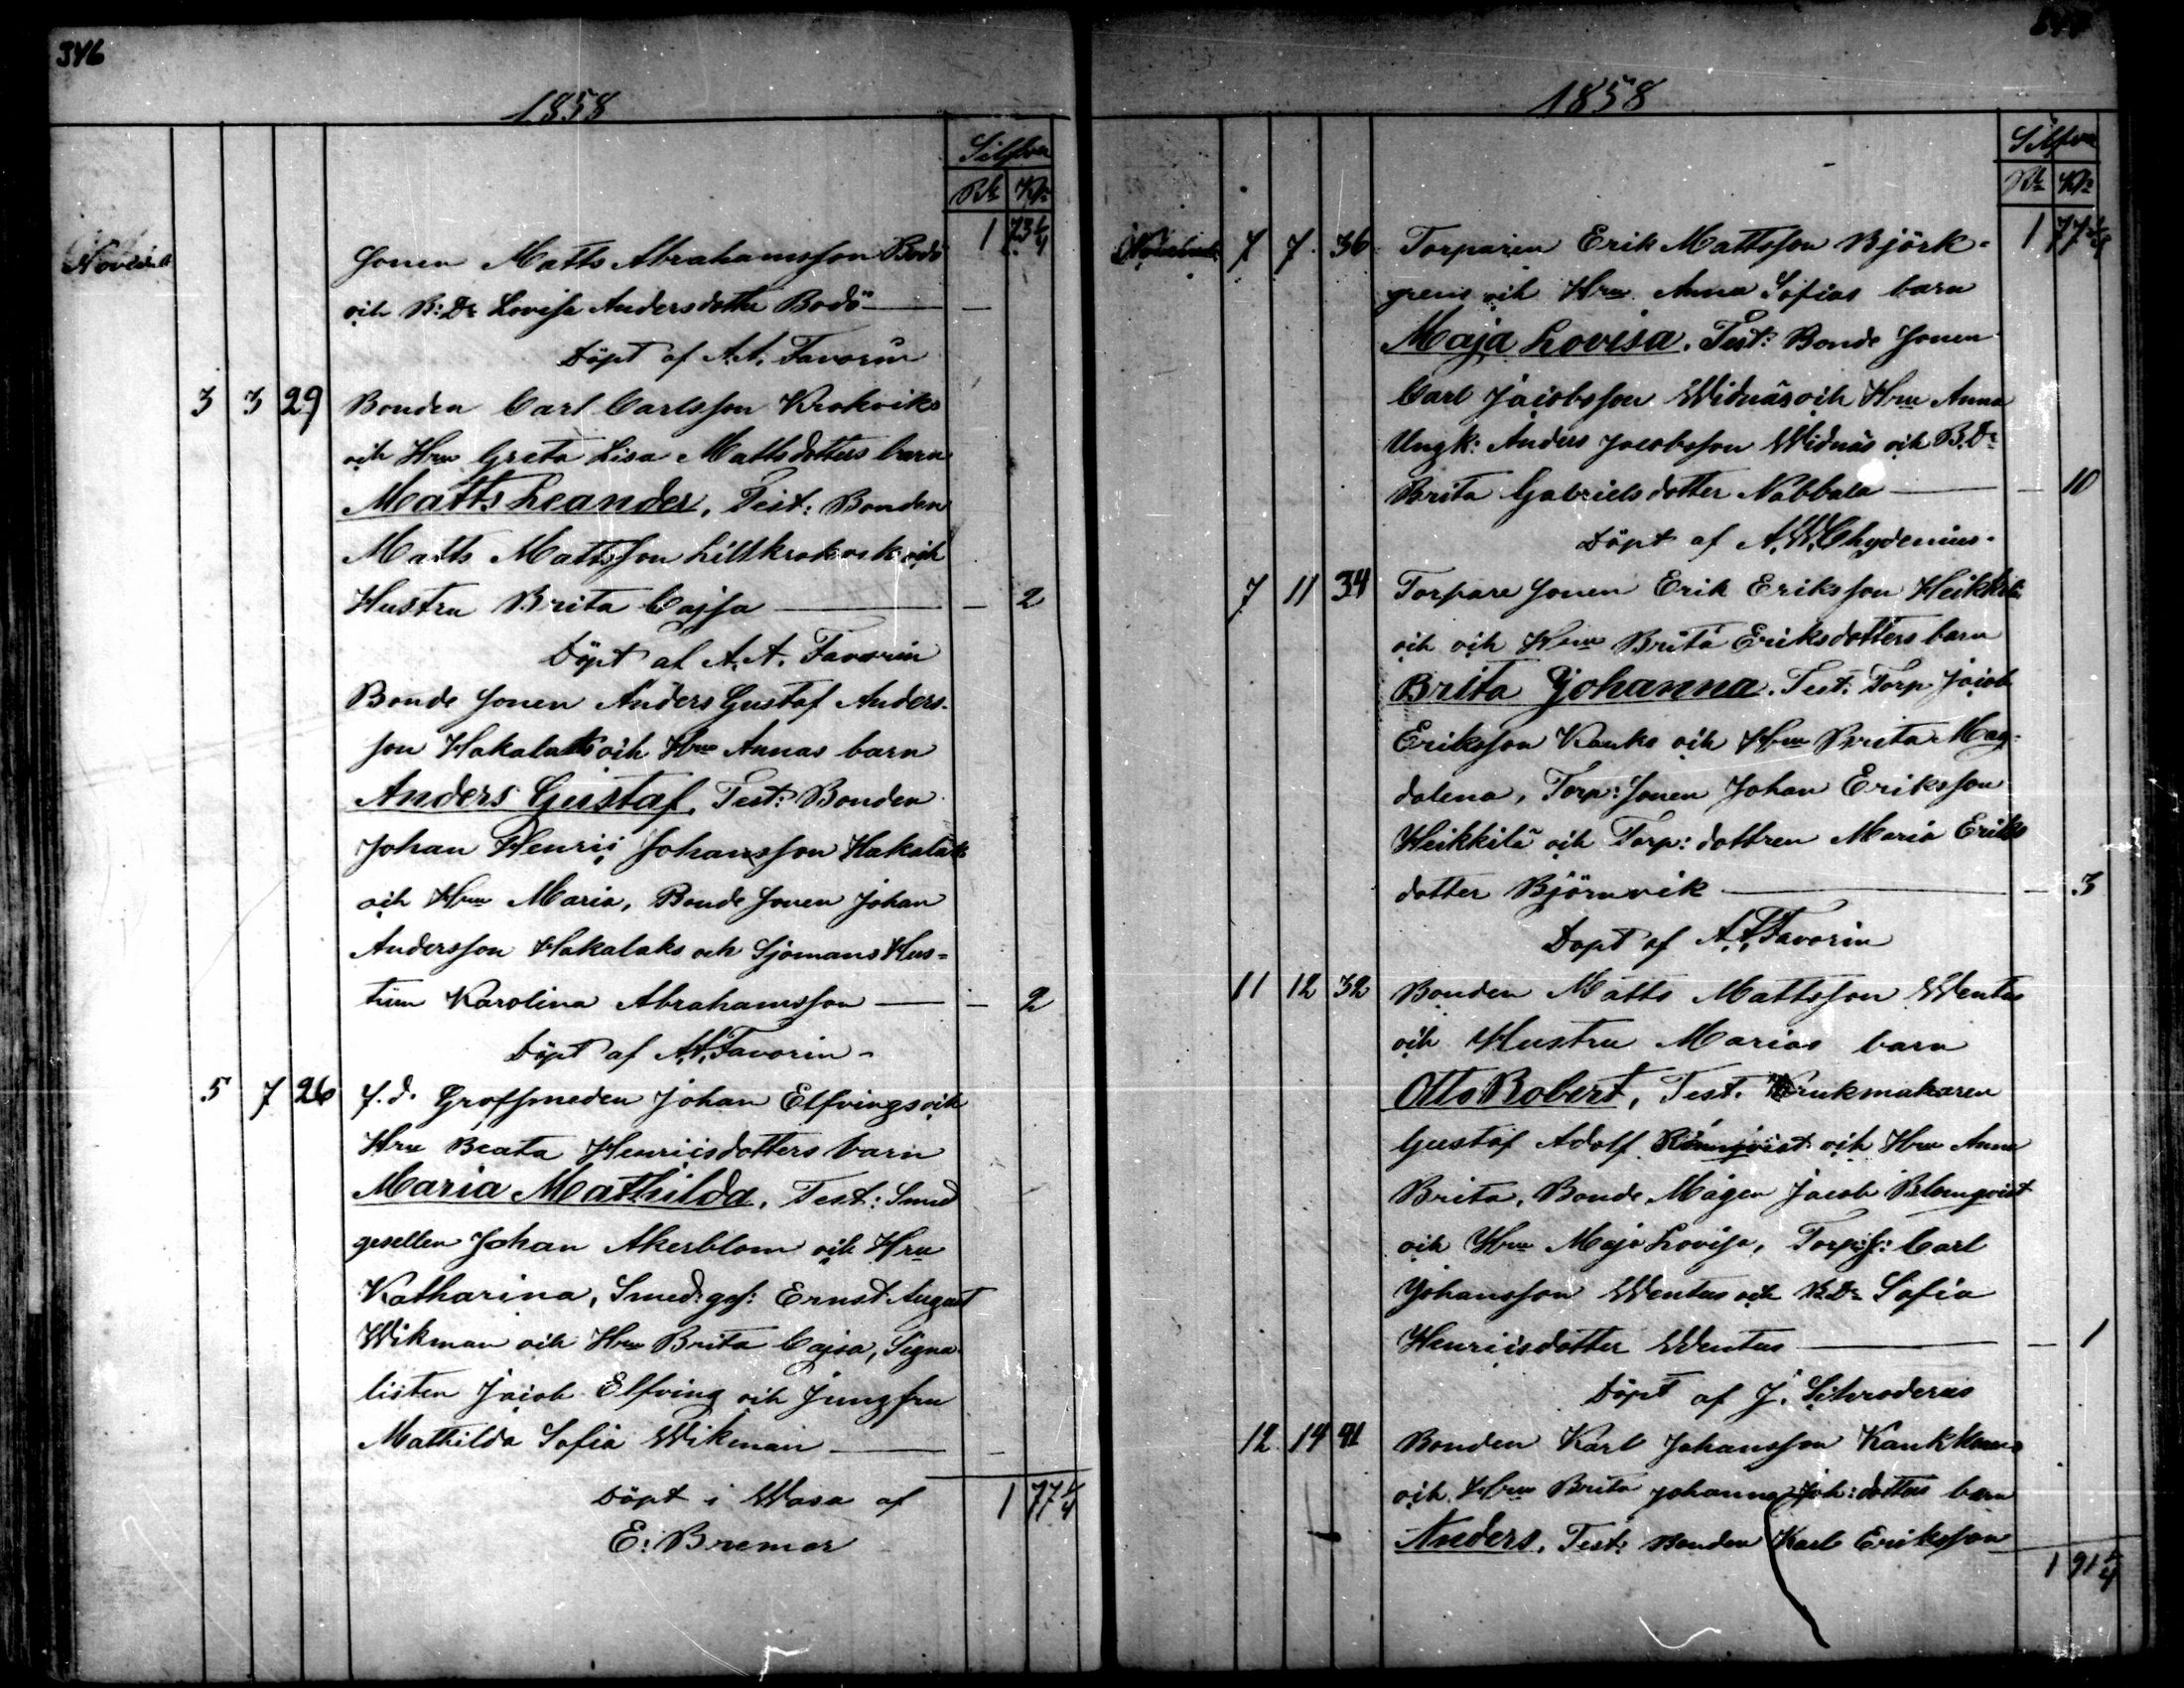 346
1858
Silfver
Rb. Kop.
November
1 73 1/4
sonen Matts Abrahamsson Bodö
och B: Dr Lovisa Andersdotter Bodö —
Döpt af A. A. Favorin
3 3 29 Bonden Carl Carlsson Krokviks
och Hru Greta Lisa Mattsdotters barn
Matts Leander, Test: Bonden
Matts Mattsson Lillkrokvik och
Hustru Brita Cajsa — 2
Döpt af A. A. Favorin
Bonde sonen Anders Gustaf Anders-
son Hakalaks och Hru Annas barn
Anders Gustaf, Test: Bonden
Johan Henric Johansson Hakalaks
och Hru Maria, Bonde sonen Johan
Andersson Hakalaks och Sjömans Hus-
trun Karolina Abrahamsson — 2
Döpt af A. A. Favorin
5 7 26 f. d. Grofsmeden Johan Elfvings och
Hru Beata Henricsdotters barn
Maria Mathilda, Test: Smed
gesellen Johan Åkerblom och Hru
Katharina, Smed: ges: Ernst August
Wikman och Hru Brita Cajsa, Signa-
listen Jacob Elfving och Jungfru
Mathilda Sofia Wikman —
Döpt i Wasa af
E: Bremer
1 77 1/4
1858
Silfver
Rb. Kop.
1 77 1/4
November 7 7 36 Torparen Erik Mattsson Björk-
grens och Hru Anna Sofias barn
Maja Lovisa. Test: Bonde sonen
Carl Jacobsson Widnäs och Hru Anna
Ungk: Anders Jacobsson Widnäs och B. Dr
Brita Gabrielsdotter Nabbala — 10
Döpt af A. W. Chydenius.
7 11 34 Torpare sonen Erik Eriksson Heikkilä
och och Hru Brita Eriksdotters barn
Brita Johanna. Test: Torp. Jacob
Eriksson Kauks och Hru Brita Mag-
dalena, Torp: sonen Johan Eriksson
Heikkilä och Torp: dottren Maria Eriks
dotter Björnvik — 3
Döpt af A. A. Favorin
11 12 32 Bonden Matts Mattsson Wentus
och Hustru Marias barn
Otto Robert, Test. Krukmakaren
Gustaf Adolf Rönnqvist och Hru Anna
Brita, Bonde Mågen Jacob Blomqvist
och Hru Maja Lovisa, Torp: s: Carl
Johansson Wentus och B. Dr Sofia
Henricsdotter Wentus — 1
Döpt af J. Schroderus
12 14 41 Bonden Karl Johansson
och Hru Brita Johanna Joh: dotters barn
Anders, Test: Bonden Karl Eriksson
1 91 1/4